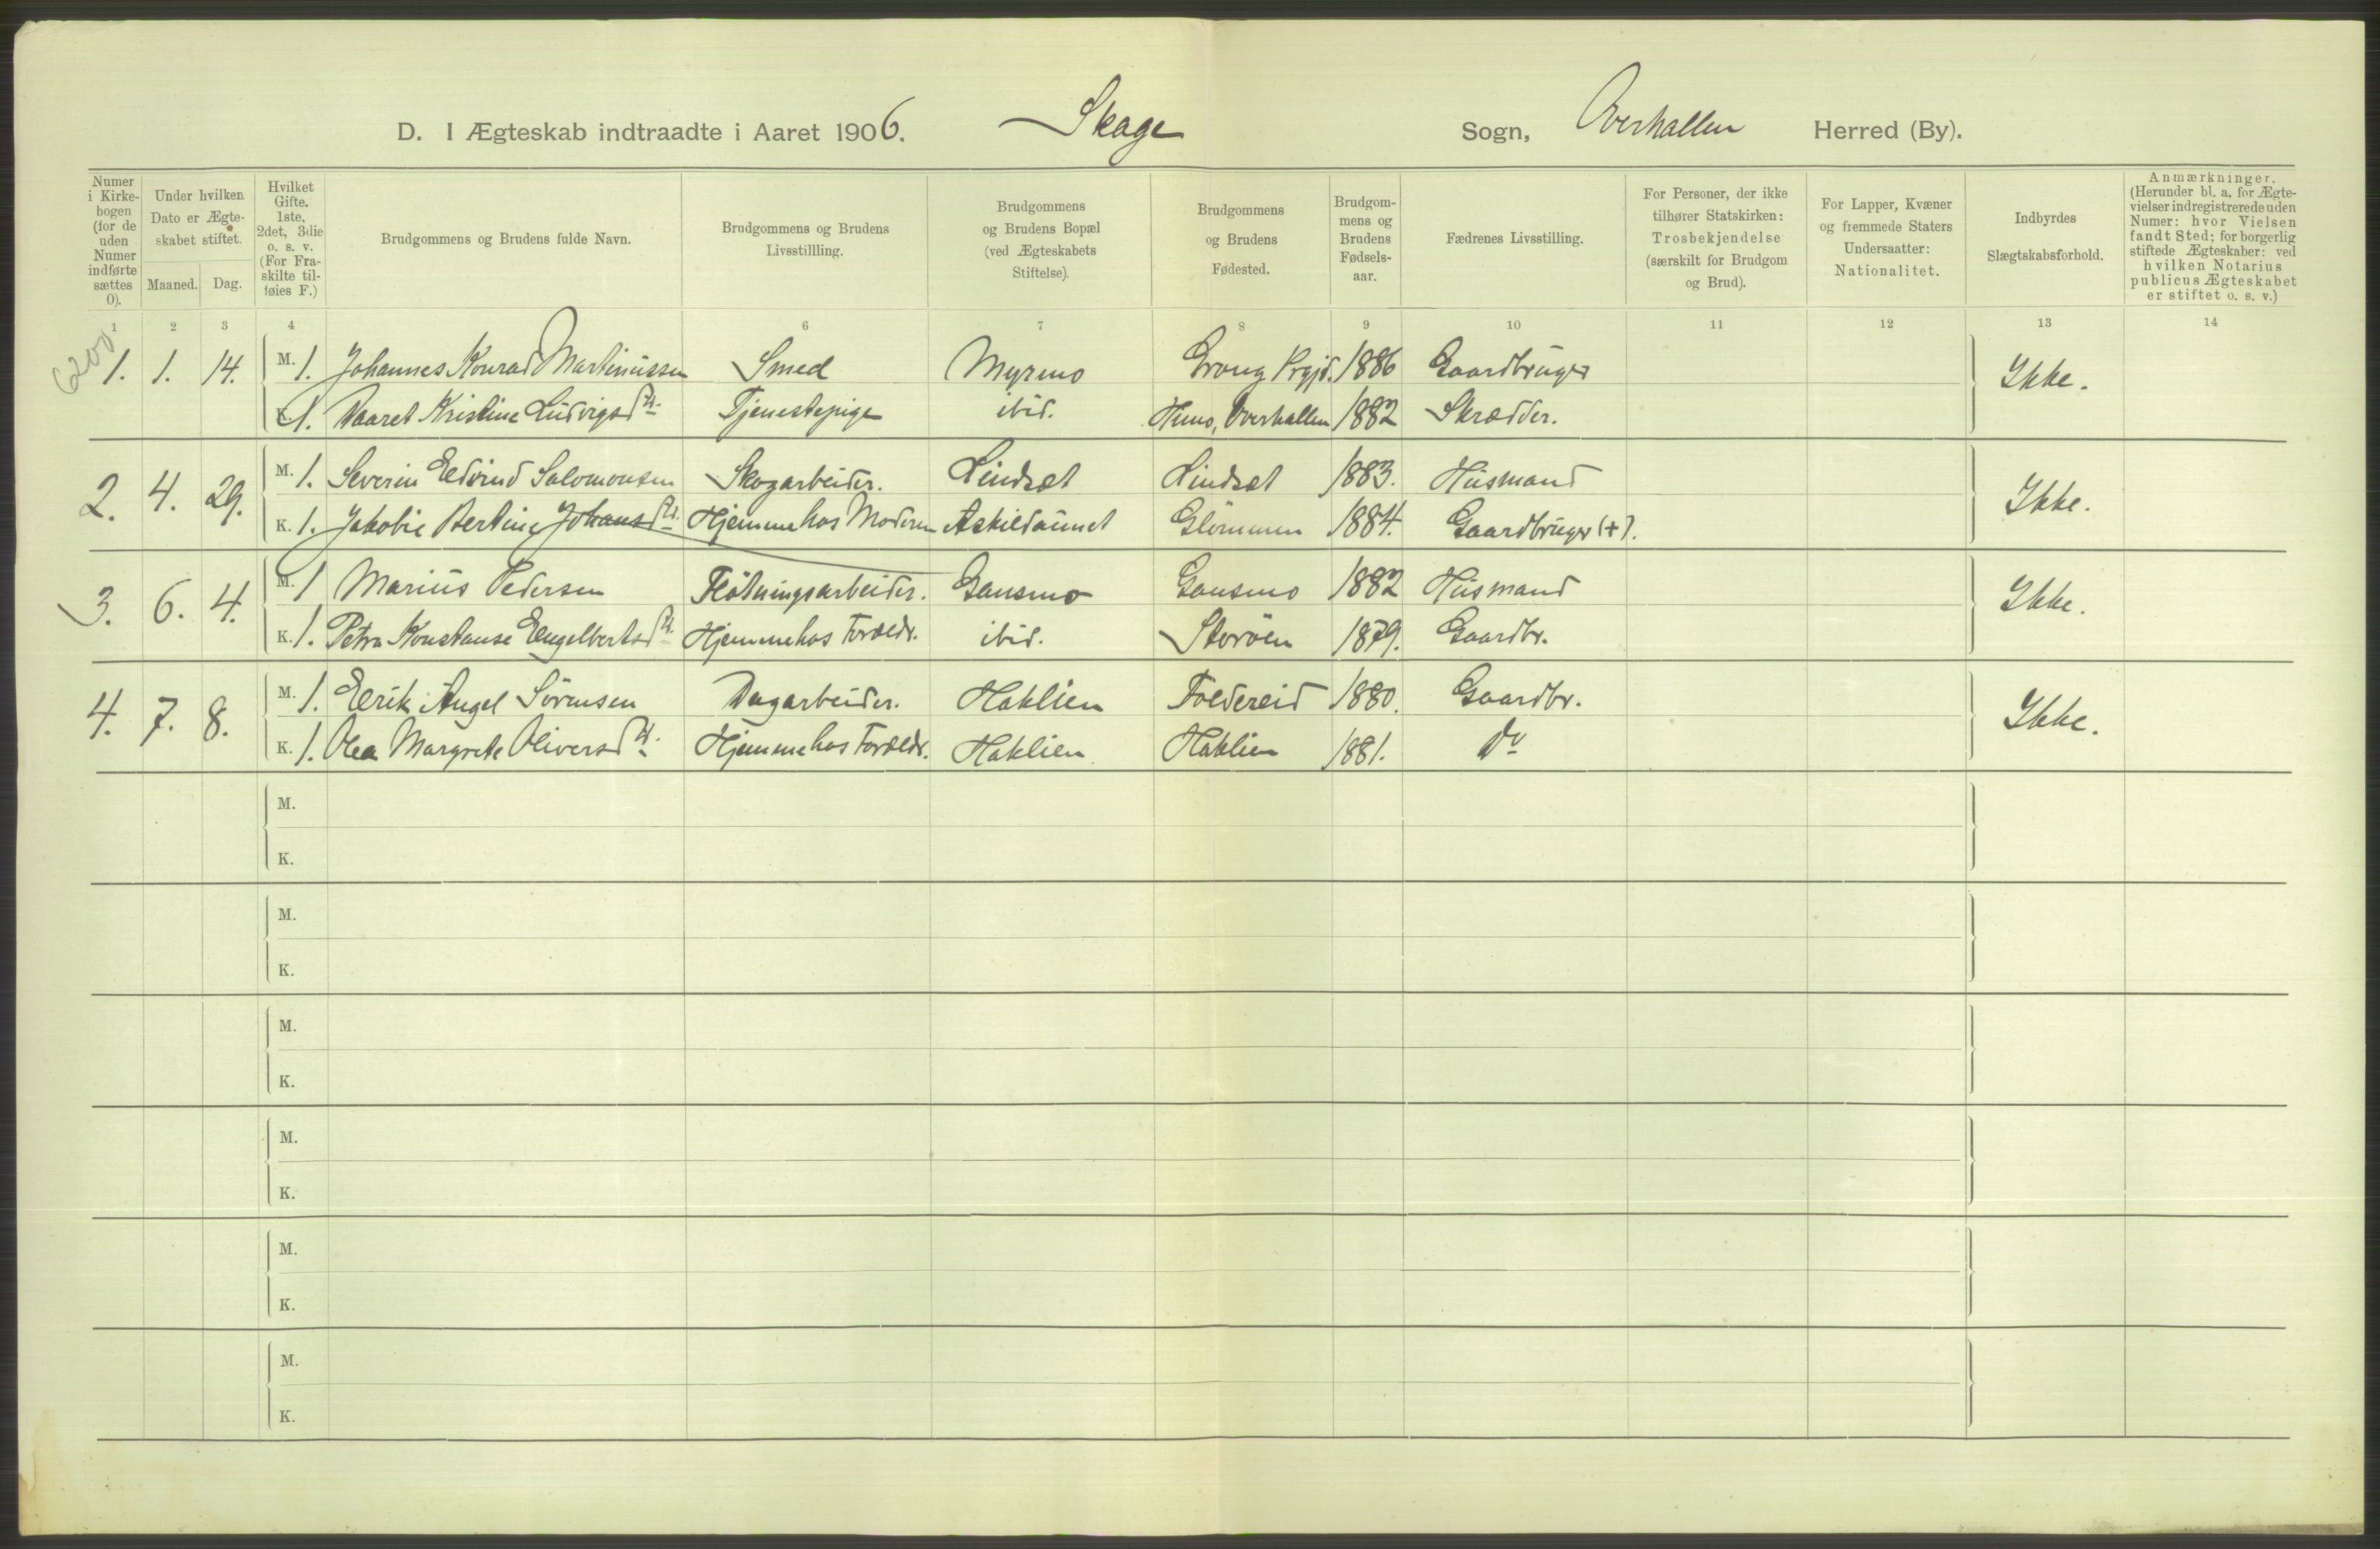 D. I Ægteskab indtraadte i Aaret 1906. Skage Sogn, Overhallen Herred (By).
Numer i Kirkebogen (for de uden Numer indførte sættes 0).
Under hvilken Dato er Ægteskabet stiftet.
Maaned. Dag.
Hvilket Gifte. 1ste, 2det, 3die o. s. v. (For Fraskilte tilføies F.)
Brudgommens og Brudens fulde Navn.
Brudgommens og Brudens Livsstillling.
Brudgommens og Brudens Bopæl (ved Ægteskabets Stiftelse).
Brudgommens og Brudens Fødested.
Brudgommens og Brudens Fødselsaar.
Fædrenes Livsstilling.
For Personer, der ikke tilhører Statskirken: Trosbekjendelse (særskilt for Brudgom og Brud).
For Lapper, Kvæner og fremmede Staters Undersaatter: Nationalitet.
Indbyrdes Slægtskabsforhold.
Anmærkninger. (Herunder bl. a. for Ægtevielser indregistrerede uden Numer: hvor Vielsen fandt Sted; for borgerlig stiftede Ægteskaber: ved hvilken Notarius publicus Ægteskabet er stiftet o. s. v.)
1 2 3 4 6 7 8 9 10 11 12 13 14
6200
1. 1. 14. M. 1. Johannes Konrad Martinussen Smed Myrmo Grong Prgjd. 1886 Gaardbruger Ikke.
K. 1. Kristine Ludvigsdtr. Tjenestepige ibid. Himo, Overhallen 1882 Skrædder.
2. 4. 29. M. 1. Severin Edvind Salomonsen Skogarbeider. Lindset Lindset 1883. Husmand Ikke.
K. 1. Jakobie Bertine Johansdtr. Hjemme hos Moderen Askildaunet Glömmen 1884. Gaardbruger (+).
3. 6. 4. M. 1 Marius Pedersen Flötningsarbeider. Gansmo Gansmo 1882 Husmand Ikke.
K. 1. Petra Konstanse Engelbertsdtr. Hjemme hos Foreldr. ibid. Storöen 1879. Gaardbr.
4. 7. 8. M. 1. Erik Angel Sörensen Dagarbeider. Haklien Foldereid 1880. Gaardbr. Ikke.
K. 1. Olea Margrete Oliversdtr. Hjemme hos Foreldr. Haklien Haklien 1881. Do
M.
K.
M.
K.
M.
K.
M.
K.
M.
K.
M.
K.